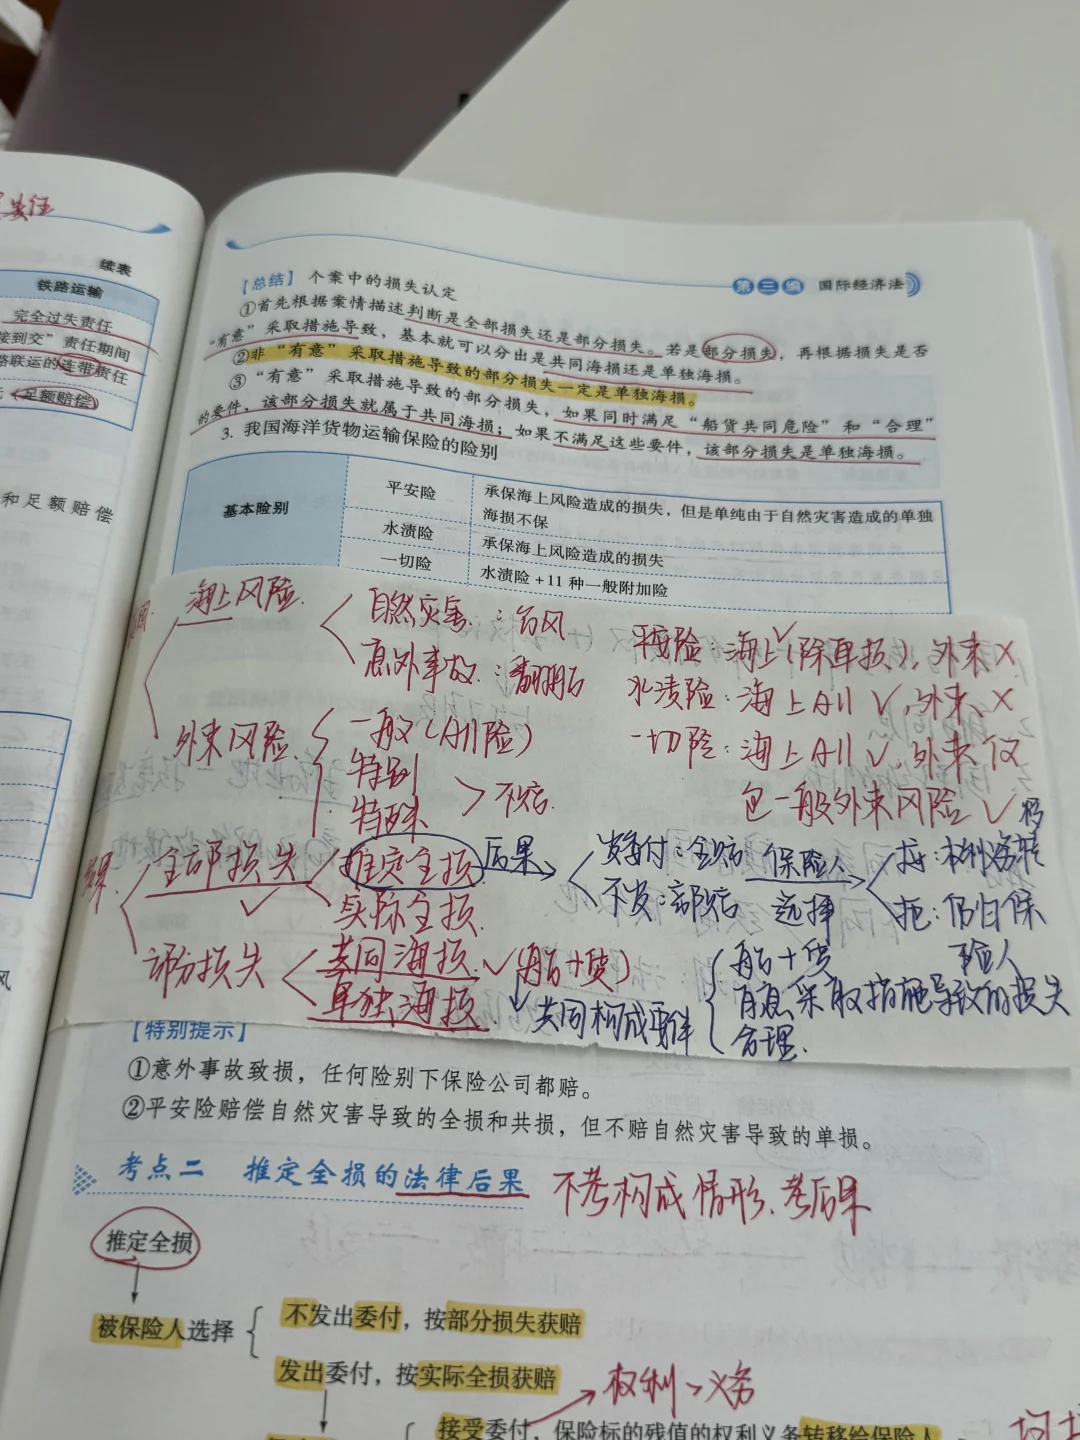 责任
续表
铁路运输
完全过失责任
接到交”责任期间
路联运的连带责任
足额赔偿
和足额赔偿
风
第三编 国际经济法
【总结】个案中的损失认定
①首先根据案情描述判断是全部损失还是部分损失。若是部分损失，再根据损失是否
“有意”采取措施导致，基本就可以分出是共同海损还是单独海损。
②非“有意”采取措施导致的部分损失一定是单独海损。
③“有意”采取措施导致的部分损失，如果同时满足“船货共同危险”和“合理”
的要件，该部分损失就属于共同海损；如果不满足这些要件，该部分损失是单独海损。
3. 我国海洋货物运输保险的险别
基本险别
平安险
承保海上风险造成的损失，但是单纯由于自然灾害造成的单独
海损不保
水渍险
承保海上风险造成的损失
一切险
水渍险+11种一般附加险
海上风险
自然灾害：台风
意外事故：翻船
外来风险
一般(All险)
特别
特殊
不赔
平安险：海上(除单损)，外来×
水渍险：海上All√，外来×
一切险：海上All√，外来仅
包一般外来风险√
全部损失
推定全损
实际全损
后果
发委付：全赔
不发：部赔
保险人
选择
接：权利义务转
移
拒：仍归保
险人
部分损失
共同海损√(船+货)
单独海损
共同构成要件
船+货
有意采取措施导致的损失
合理
【特别提示】
①意外事故致损，任何险别下保险公司都赔。
②平安险赔偿自然灾害导致的全损和共损，但不赔自然灾害导致的单损。
考点二 推定全损的法律后果
不考构成情形、考后果
推定全损
被保险人选择
不发出委付，按部分损失获赔
发出委付，按实际全损获赔
权利、义务
接受委付，保险标的残值的权利义务转移给保险人